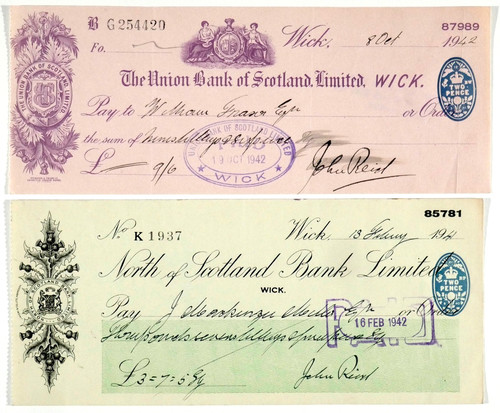 B G 254420 87989
Fo. Wick, 8 Oct 1942
The Union Bank of Scotland, Limited, WICK.
Pay to William Fraser Esqr or Order
the sum of Nine shillings & six pence
£ 9/6
UNION BANK OF SCOTLAND LIMITED
19 OCT 1942
WICK
John Reid
THE UNION BANK OF SCOTLAND LIMITED
TWO PENCE
85781
No K 1937 Wick, 13 Feby 194
North of Scotland Bank Limited
WICK.
Pay J Mackenzie Esqr or Order
£3=7=5
PAID
16 FEB 1942
John Reid
TWO PENCE